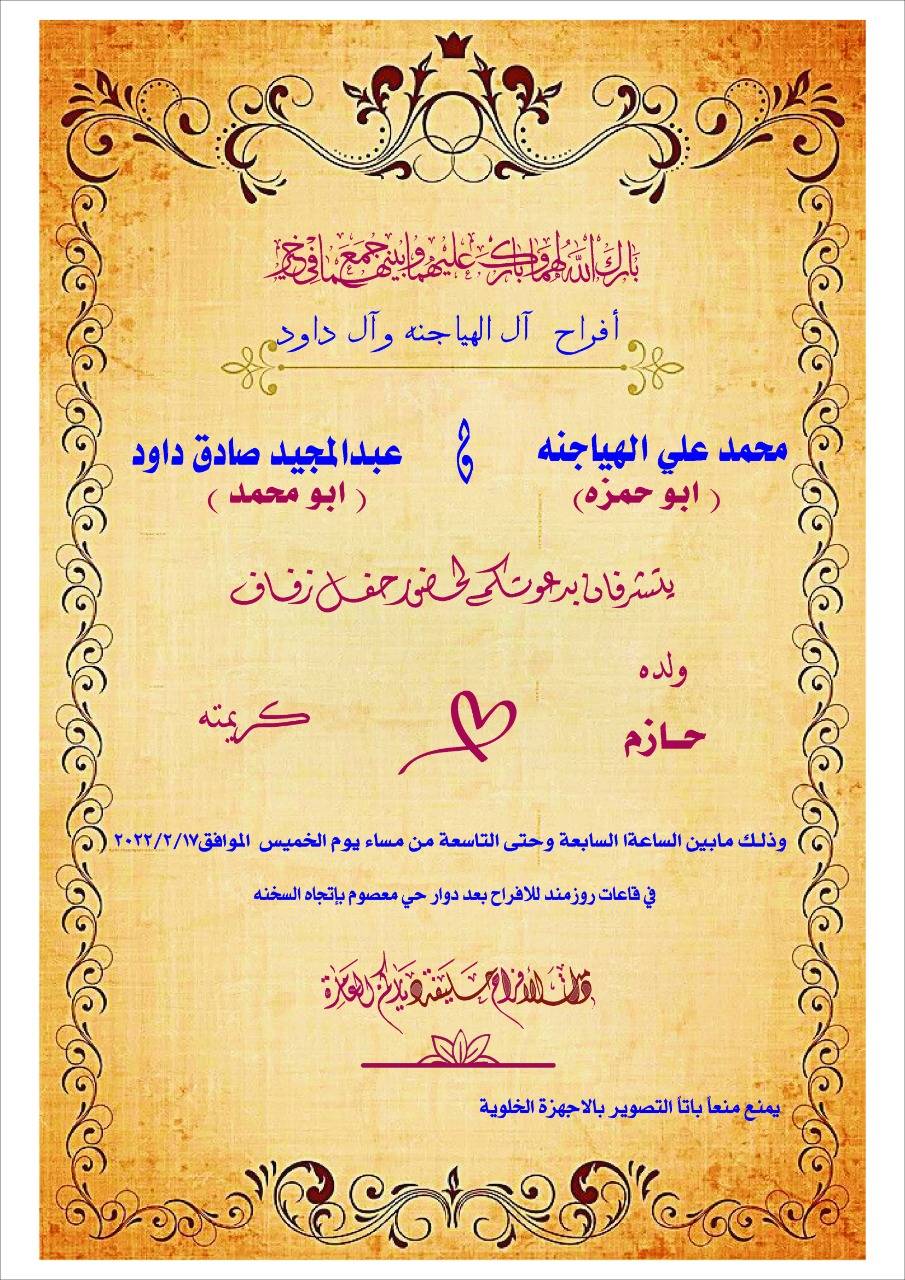 بارك الله لهما وبارك عليهما وجمع بينهما في خير
أفراح آل الهياجنه وآل داود
محمد علي الهياجنه & عبدالمجيد صادق داود
( ابو حمزه ) ( ابو محمد )
يتشرفان بدعوتكم لحضور حفل زفاف
ولده
حازم
كريمته
وذلك مابين الساعةا السابعة وحتى التاسعة من مساء يوم الخميس الموافق٢٠٢٢/٢/١٧
في قاعات روزمند للافراح بعد دوار حي معصوم بإتجاه السخنه
دامت الأفراح حليفة دياركم العامرة
يمنع منعاً باتاً التصوير بالاجهزة الخلوية